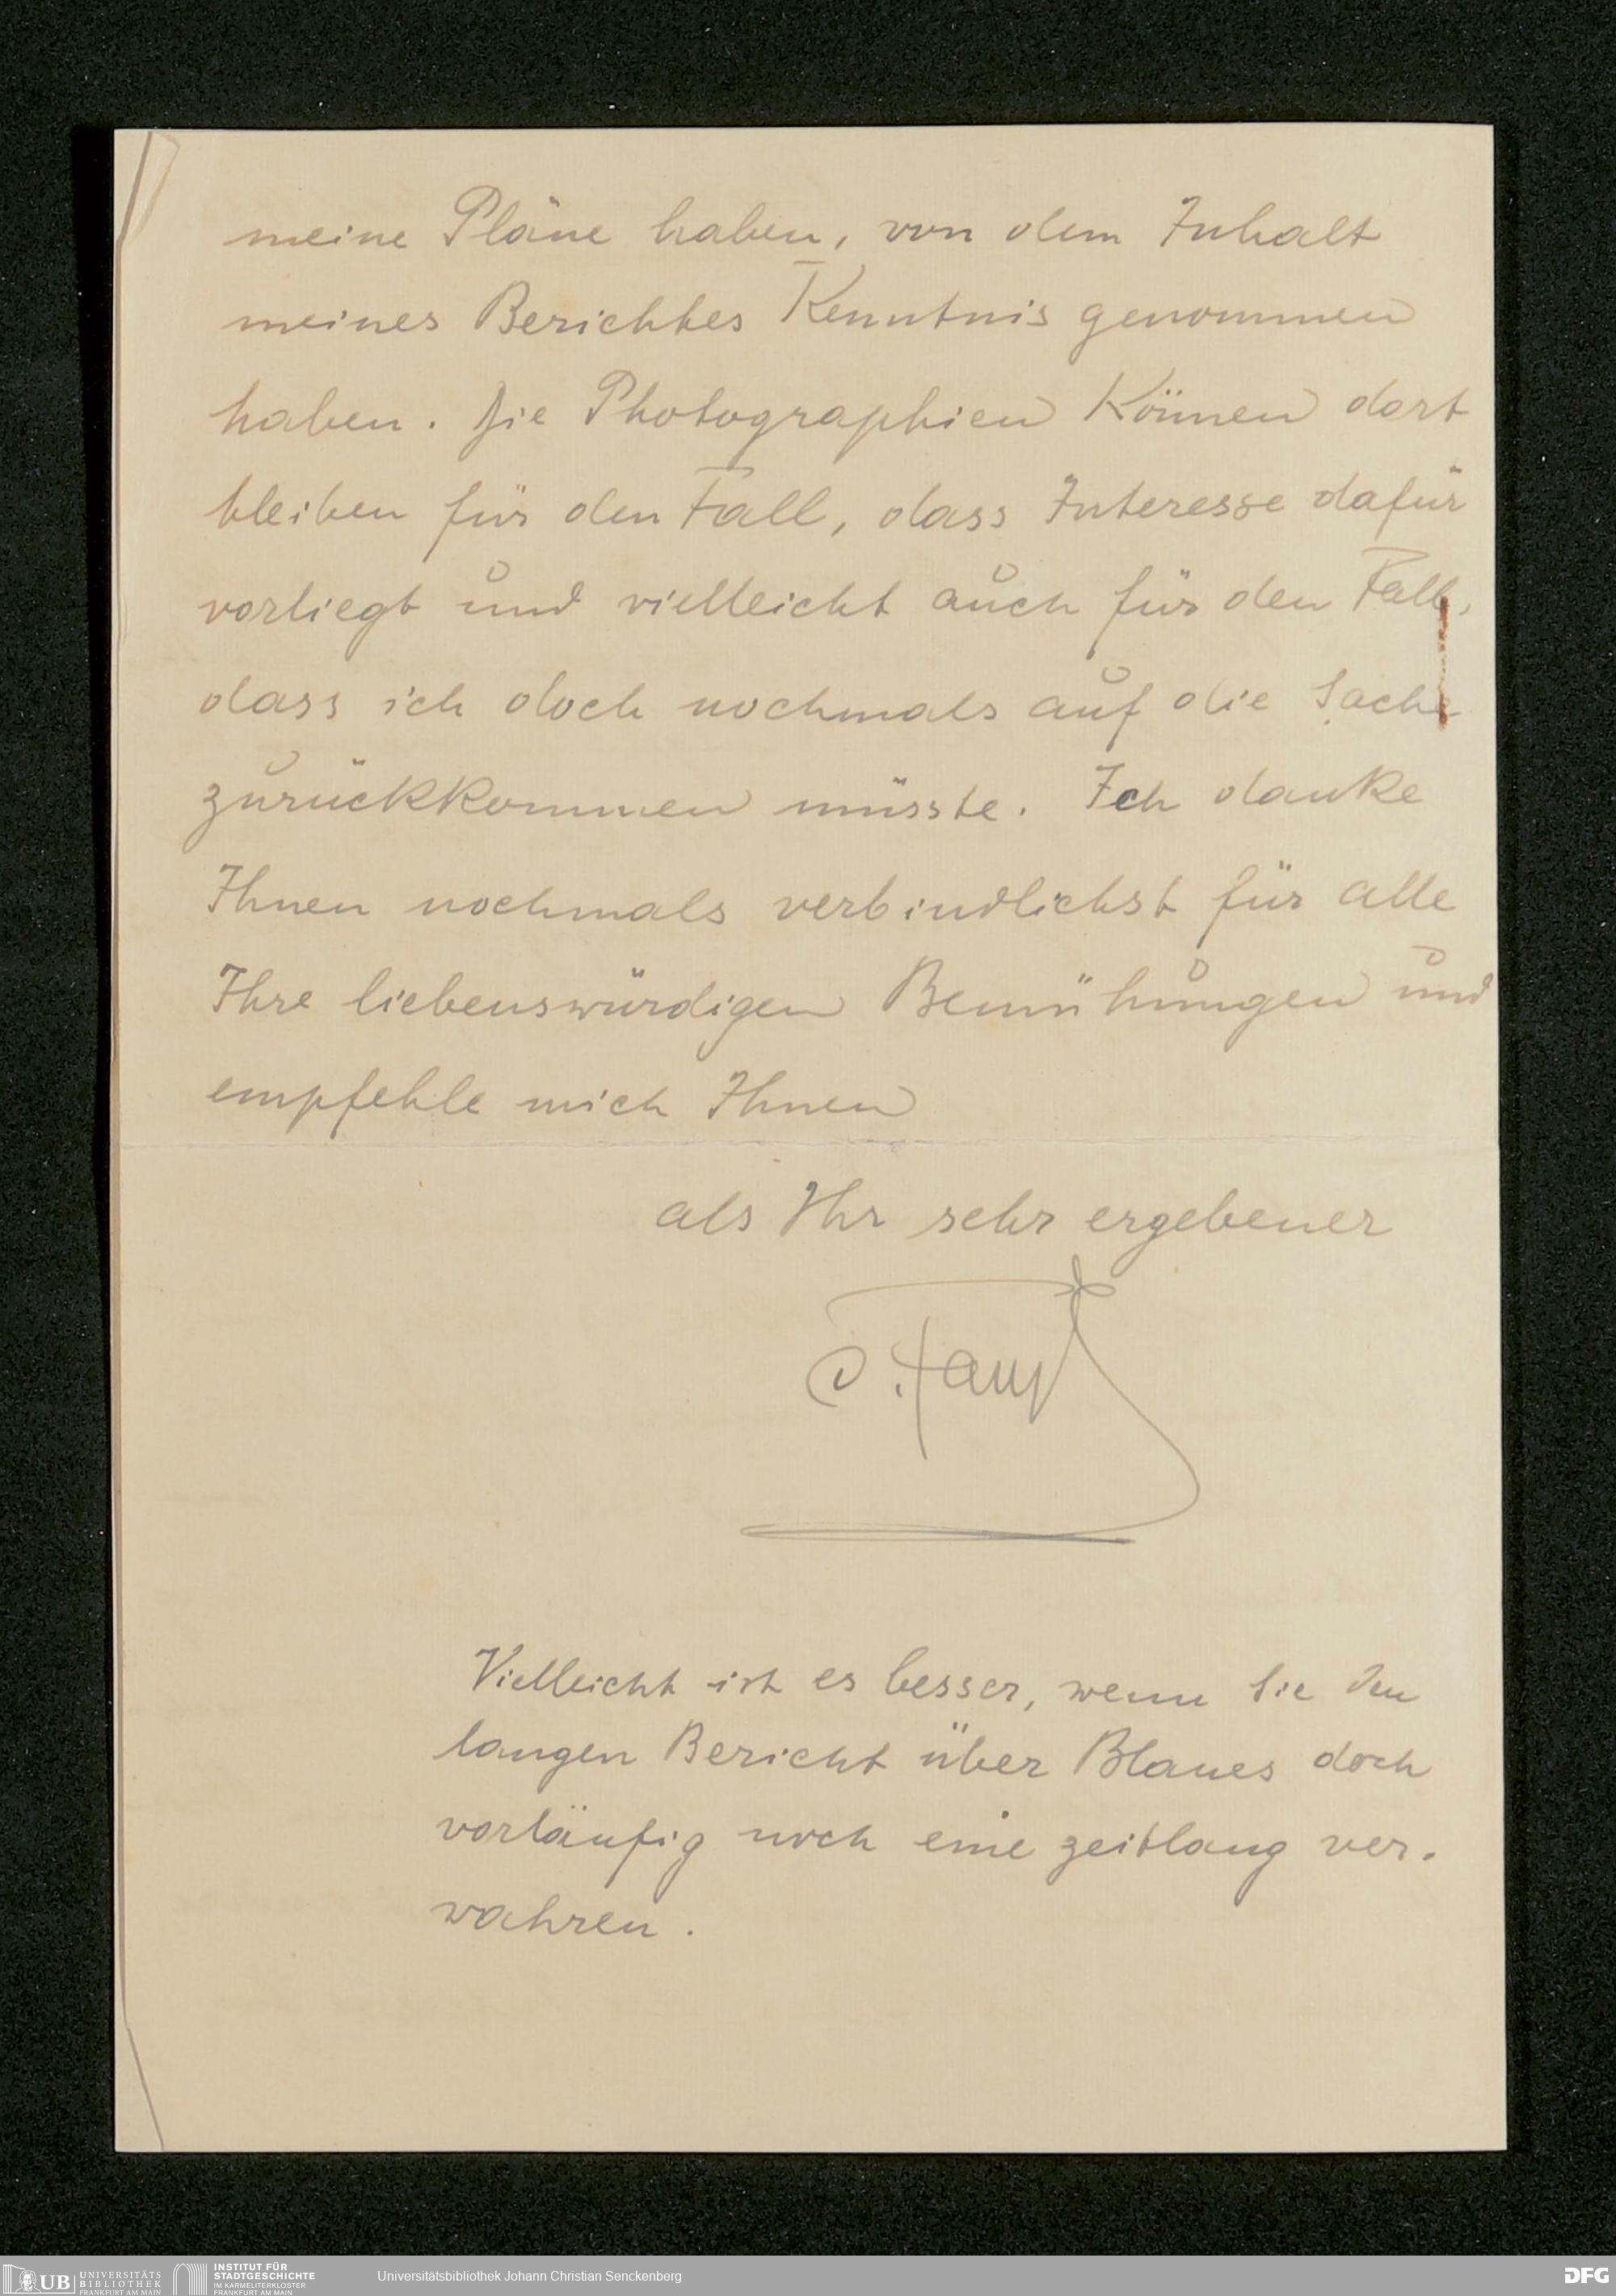 meine Pläne haben, von dem Inhalt
meines Berichtes Kenntnis genommen
haben. Die Photographien können dort
bleiben für den Fall, dass Interesse dafür
vorliegt und vielleicht auch für den Fall,
dass ich doch nochmals auf die Sache
zurückkommen müsste. Ich danke
Ihnen nochmals verbindlichst für alle
Ihre liebenswürdigen Bemühungen und
empfehle mich Ihnen
als Ihr sehr ergebener
Vielleicht ist es besser, wenn Sie den
langen Bericht über Blaues doch
vorläufig noch eine zeitlang ver-
wahren.
UB UNIVERSITÄTS
BIBLIOTHEK
FRANKFURT AM MAIN
INSTITUT FÜR
STADTGESCHICHTE
IM KARMELITERKLOSTER
FRANKFURT AM MAIN
Universitätsbibliothek Johann Christian Senckenberg
DFG